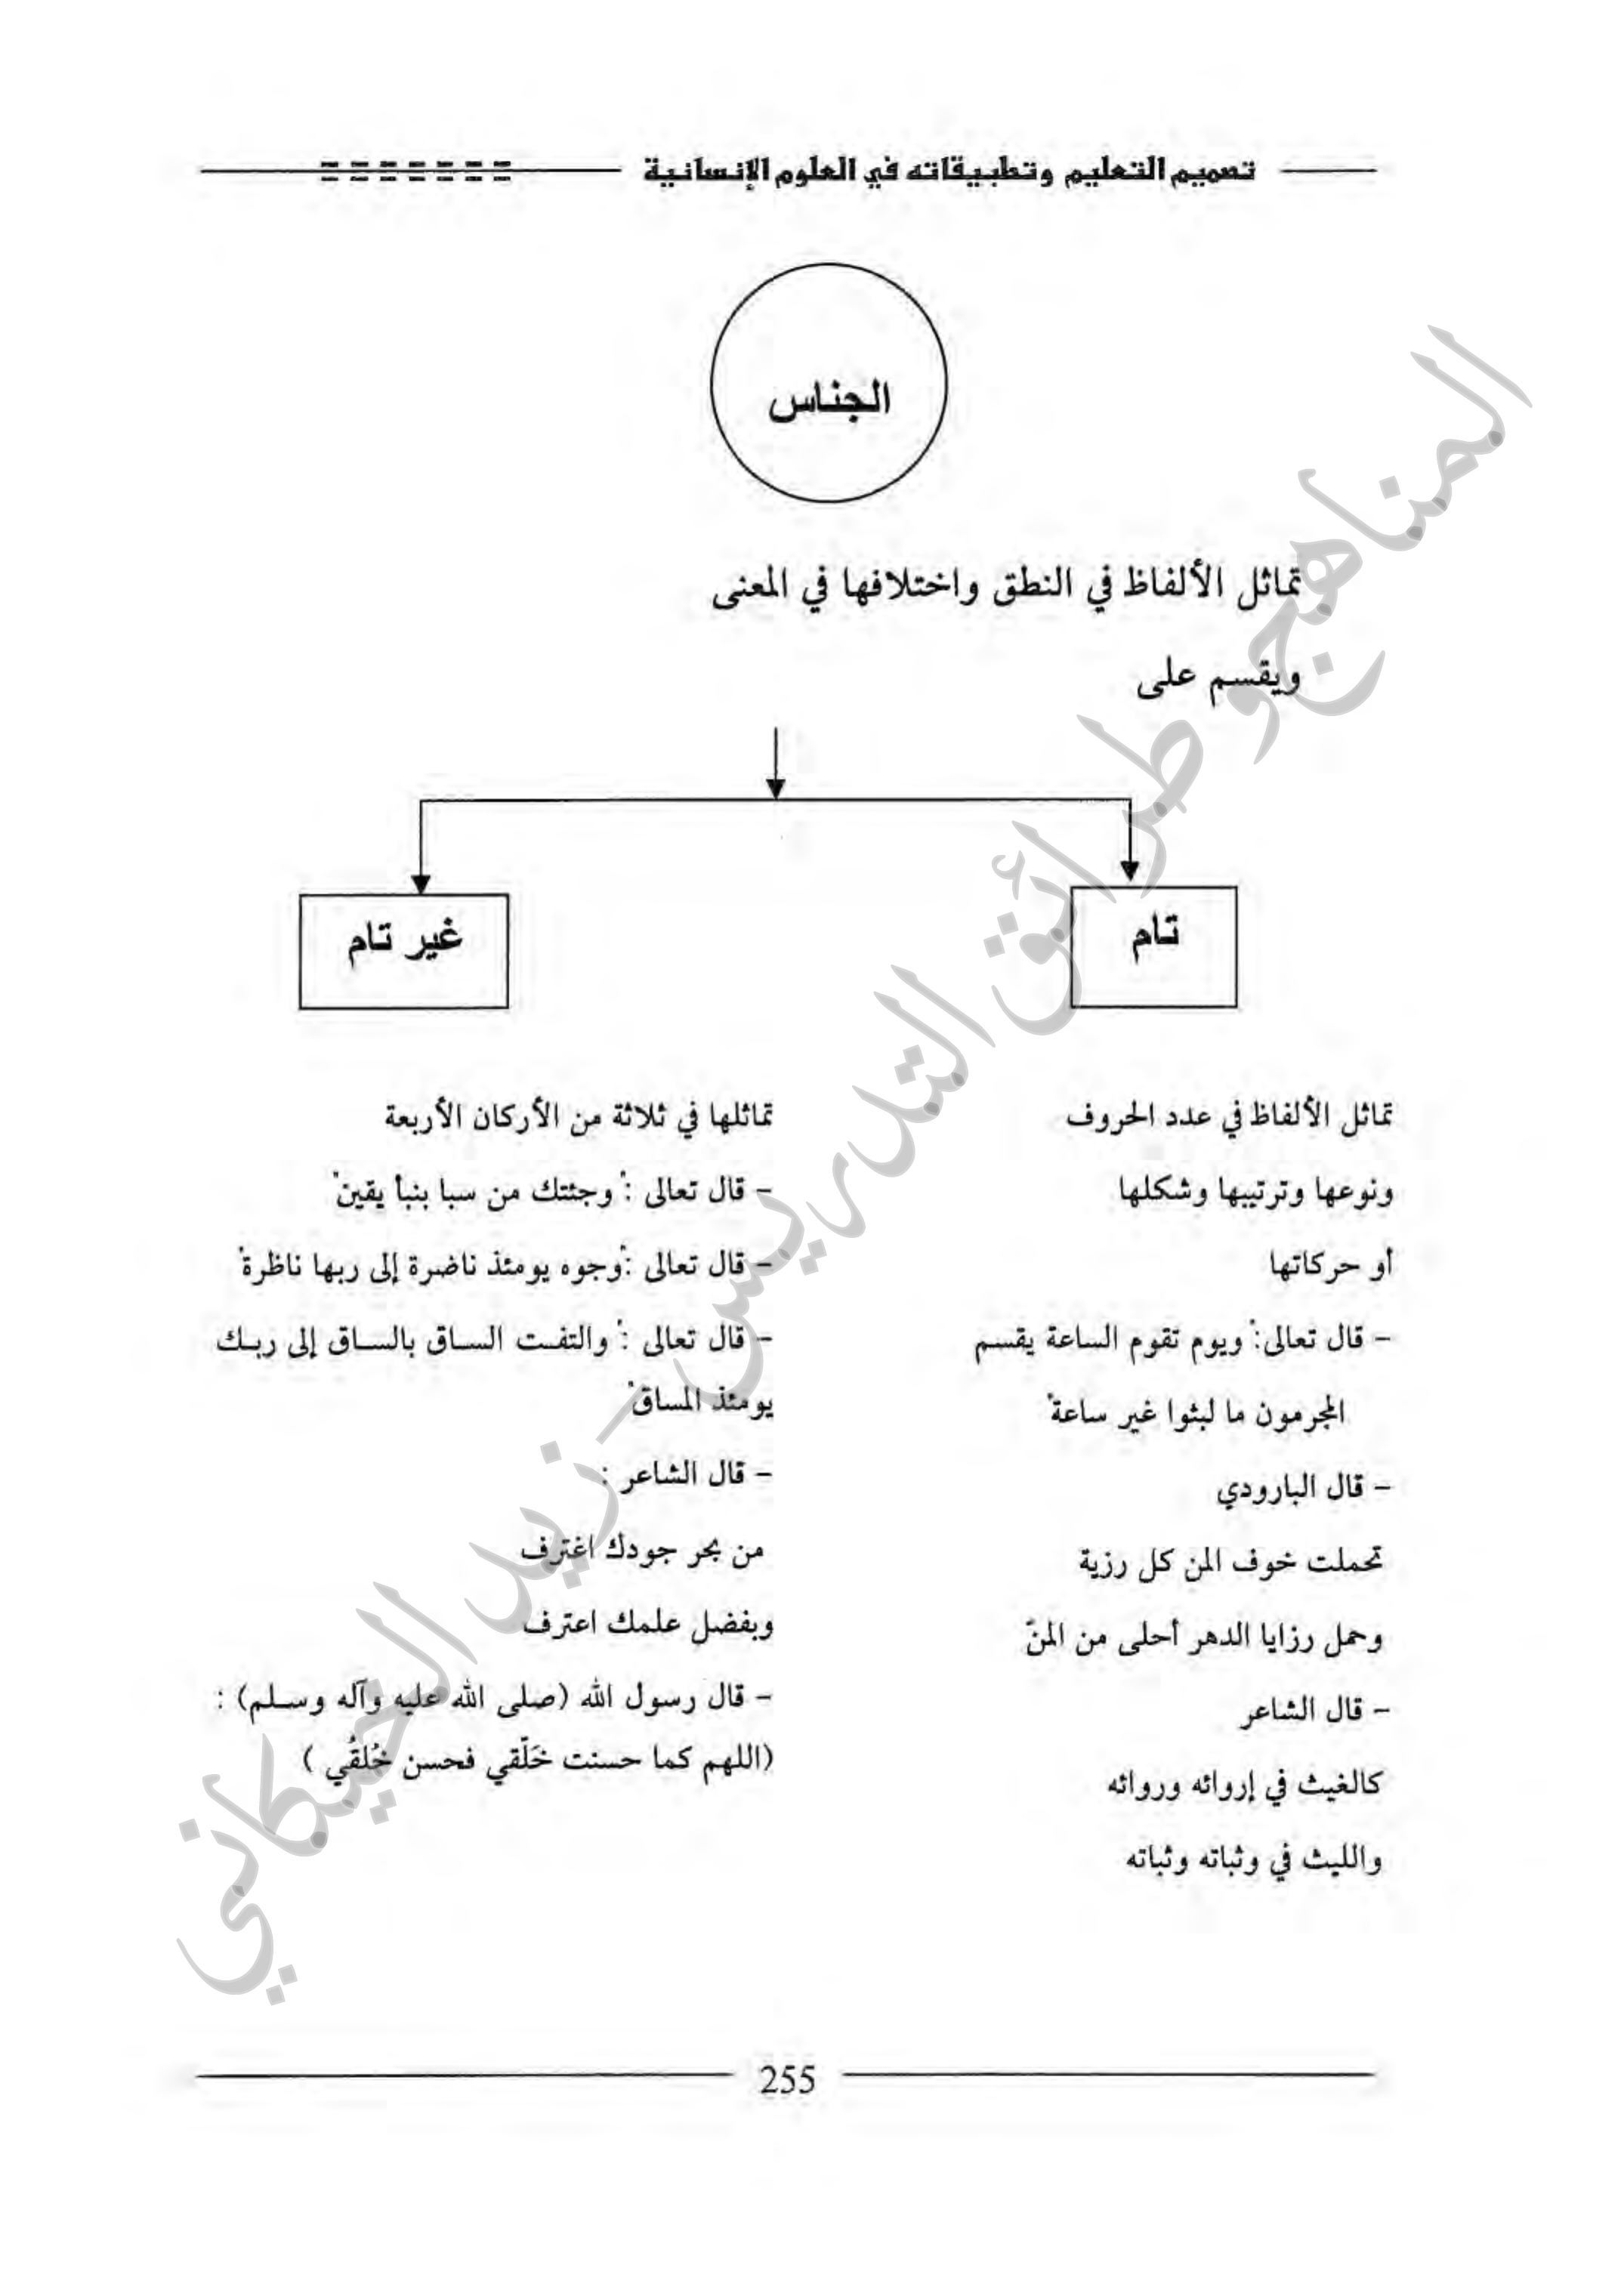 تصميم التعليم وتطبيقاته في العلوم الإنسانية
الجناس
تماثل الألفاظ في النطق واختلافها في المعنى
ويقسم على
تام
غير تام
تماثل الألفاظ في عدد الحروف
ونوعها وترتيبها وشكلها
أو حركاتها
- قال تعالى: " ويوم تقوم الساعة يقسم
المجرمون ما لبثوا غير ساعة"
- قال البارودي
تحملت خوف المن كل رزية
وحمل رزايا الدهر أحلى من المنّ
- قال الشاعر
كالغيث في إروائه وروائه
والليث في وثباته وثباته
تماثلها في ثلاثة من الأركان الأربعة
- قال تعالى : " وجئتك من سبا بنبأ يقين"
- قال تعالى : "وجوه يومئذ ناضرة إلى ربها ناظرة"
- قال تعالى : " والتفت الساق بالساق إلى ربك
يومئذ المساق"
- قال الشاعر :
من بحر جودك اغترف
وبفضل علمك اعترف
- قال رسول الله (صلى الله عليه وآله وسلم) :
(اللهم كما حسنت خَلّقي فحسن خُلقُي )
255
المناهج وطرائق التدريس - زيد الخيكاني